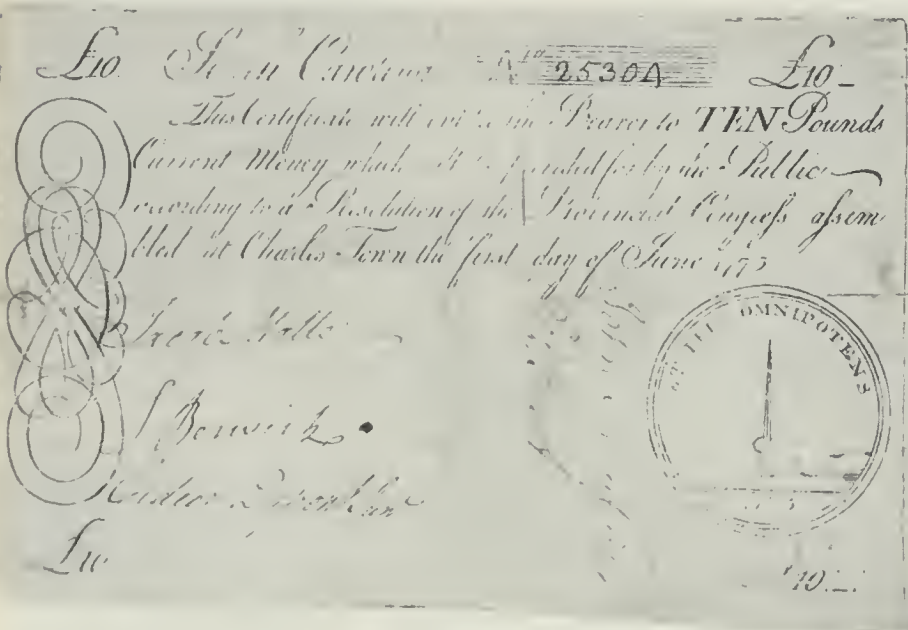 £10. South Carolina No. 2530A £10
This Certificate will entitle the Bearer to TEN Pounds
Current Money which is provided for by the Public
according to a Resolution of the Provincial Congress assem
bled at Charles-Town the first day of June 1775
Berwick
£10
ET III OMNIPOTENS
£10